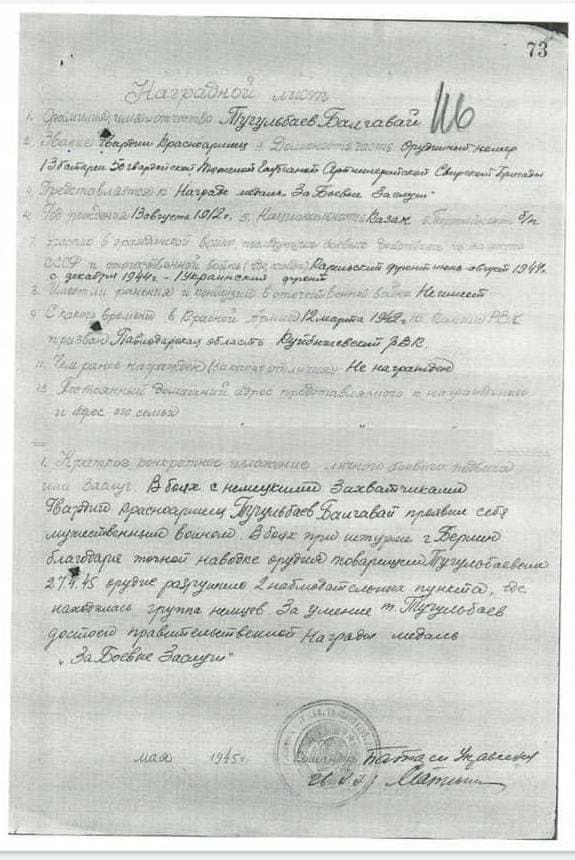 73
Наградной лист
1. Фамилия, имя отчество Тугульбаев Балгавай
2. Звание Гвардии Красноармеец 3. Должность, часть Орудийный номер
13 батареи 50 гвардейской Тяжелой Гаубичной Артиллерийской Свирской Бригады
Представляется к Награде медаль "За Боевые Заслуги"
Год рождения 13 августа 1912 г. 5. Национальность Казах 6. Партийность б/п
7. Участие в гражданской войне, последующих боевых действиях по защите
СССР и отечественной войне Карельский фронт июнь-август 1944 г.
с декабря 1944 г - 1 Украинский фронт
8. Имеет ли ранения и контузии в отечественной войне Не имеет
9. С какого времени в Красной Армии 12 марта 1942 г. 10. Каким РВК
призван Павлодарская область Куйбышевский РВК.
11. Чем ранее награжден (за какие отличия) Не награжден
12. Постоянный домашний адрес представляемого к награждению
и адрес его семьи
1. Краткое, конкретное изложение личного боевого подвига
или заслуг. В боях с немецкими захватчиками
Гвардии Красноармеец Тугульбаев Балгавай проявил себя
мужественным воином. В боях при штурме г. Берлин
благодаря точной наводке орудия товарищем Тугульбаевым
27.4.45 орудие разрушило 2 наблюдательных пункта, где
находилась группа немцев. За умение т. Тугульбаев
достоен правительственной Награды медаль
"За Боевые Заслуги"
мая 1945 г.